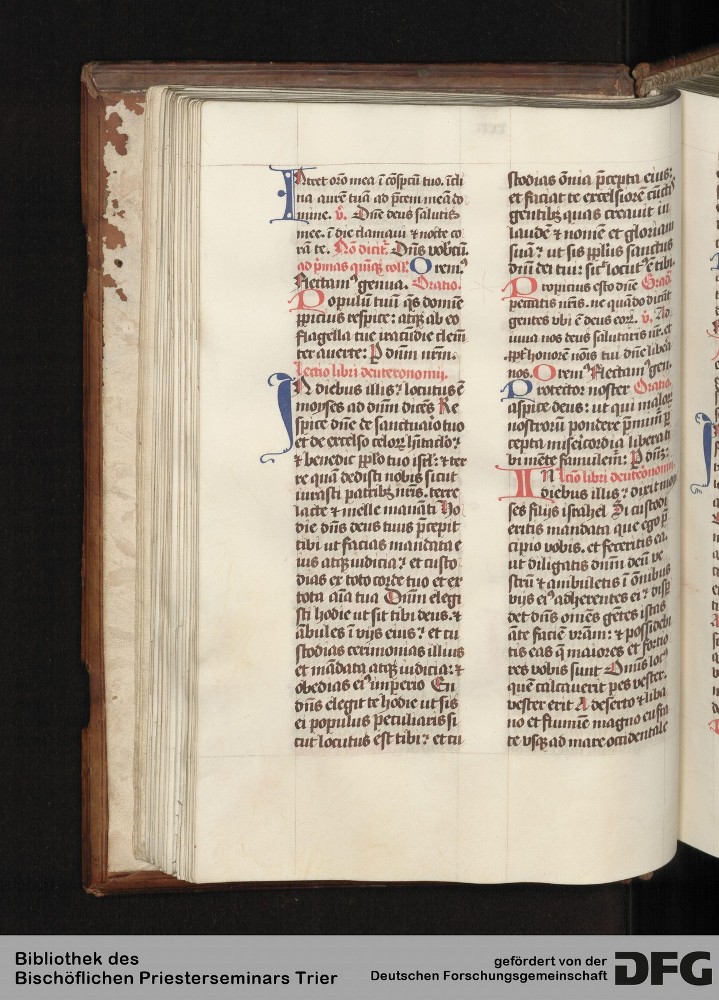 Intret orō mea ī cōspectu tuo. īcli
na aurē tuā ad p̄cem meā do
mine. v̄. Dn̄e deus salutis
mee. ī die clamaui et nocte co
rā te. Nō dicit̄. Dn̄s vobcū.
ad p̄mas quīq; coll'. Orem9
flectam9 genua. Oratio.
Populū tuū qs domīe
ꝓpicius respice: atq; ab eo
flagella tue iracūdie clem̄
ter auerte: P dnm nrm.
lectio libri deuteronomij.
IN diebus illis: locutus ē
moyses ad dnm dicēs Re
spice dn̄e de sanctuario tuo
et de excelso celoꝝ h̄itaclo:
et benedic pplo tuo isrl: et ter
re quā dedisti nobis sicut
iurasti patribus nr̄is. terre
lacte et melle mananti Ho
die dn̄s deus tuus p̄cepit
tibi ut facias mandata e
ius atq; iudicia: et custo
dias ex toto corde tuo et ex
tota aīa tua Dnm elegi
sti hodie ut sit tibi deus. et
ābules ī vijs eius: et cu
stodias cerimonias illius
et mādata atq; iudicia: et
obedias ei9 imperio En
dn̄s elegit te hodie ut sis
ei populus peculiaris si
cut locutus est tibi: et cu
stodias ōnia p̄cepta eius:
et faciat te excelsiorē cūctis
gentibus quas creauit in
laudē et nomē et gloriam
suā: ut sis pplus sanctus
dn̄i dei tui: sicut locut9 ē tibi.
Propicius esto dn̄e Grad'
peccatis nr̄is. ne quādo dicāt
gentes vbi ē deus eoꝝ. v̄. Ad
iuua nos deus salutaris nr̄. et
ꝓpt' honorē nōis tui dn̄e libera
nos. Orem9 flectam9 gen.
Protector noster Oratio.
aspice deus: ut qui maloꝝ
nostroꝝ pondere p̄mim̄ p̄
cepta misericordia liberati
bi mēte famulem̄: P dnm:
lectio libri deuteronomij.
IN diebus illis: dixit moy
ses filijs israhel Si custodi
eritis mandata que ego p̄
cipio vobis. et feceritis ea.
ut diligatis dnm deū ve
strū et ambuletis ī ōnibus
vijs ei9 adherentes ei: disp̄
det dn̄s omēs gētes istas
āte faciē vr̄am: et possidebi
tis eas q̄ maiores et fortio
res vobis sunt Omnis loc9
quē calcauerit pes vester.
vester erit A deserto et liba
no et flumīe magno eufra
te vsq; ad mare occidentale
Bibliothek des
Bischöflichen Priesterseminars Trier
gefördert von der
Deutschen Forschungsgemeinschaft
DFG